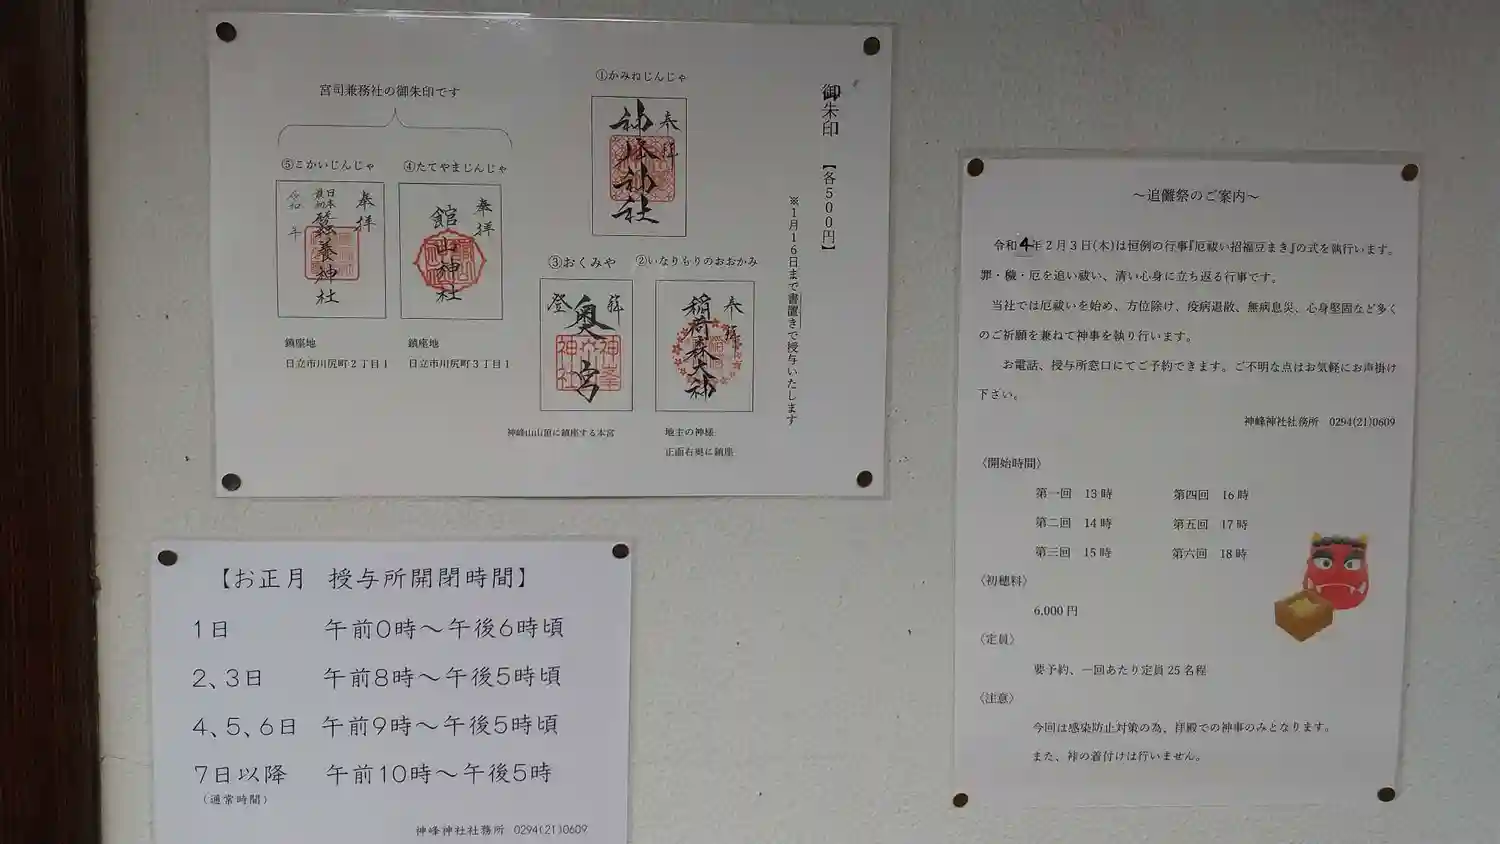 御朱印 【各500円】
※1月16日まで書置きで授与いたします
①かみねじんじゃ
奉拝
神峰神社
②いなりもりのおおかみ
奉拝
稲荷森大神
地主の神様
正面右奥に鎮座
③おくみや
登拝
奥宮
神峰山山頂に鎮座する本宮
宮司兼務社の御朱印です
④たてやまじんじゃ
奉拝
館山神社
鎮座地
日立市川尻町3丁目1
⑤こかいじんじゃ
奉拝
日本最初
蠶養神社
令和 年
鎮座地
日立市川尻町2丁目1
【お正月 授与所開閉時間】
1日 午前0時～午後6時頃
2、3日 午前8時～午後5時頃
4、5、6日 午前9時～午後5時頃
7日以降 午前10時～午後5時
(通常時間)
神峰神社社務所 0294(21)0609
～追儺祭のご案内～
令和4年2月3日(木)は恒例の行事『厄祓い招福豆まき』の式を執行います。
罪・穢・厄を追い祓い、清い心身に立ち返る行事です。
当社では厄祓いを始め、方位除け、疫病退散、無病息災、心身堅固など多く
のご祈願を兼ねて神事を執り行います。
お電話、授与所窓口にてご予約できます。ご不明な点はお気軽にお声掛け
下さい。
神峰神社社務所 0294(21)0609
〈開始時間〉
第一回 13時 第四回 16時
第二回 14時 第五回 17時
第三回 15時 第六回 18時
〈初穂料〉
6,000円
〈定員〉
要予約、一回あたり定員25名程
〈注意〉
今回は感染防止対策の為、拝殿での神事のみとなります。
また、裃の着付けは行いません。